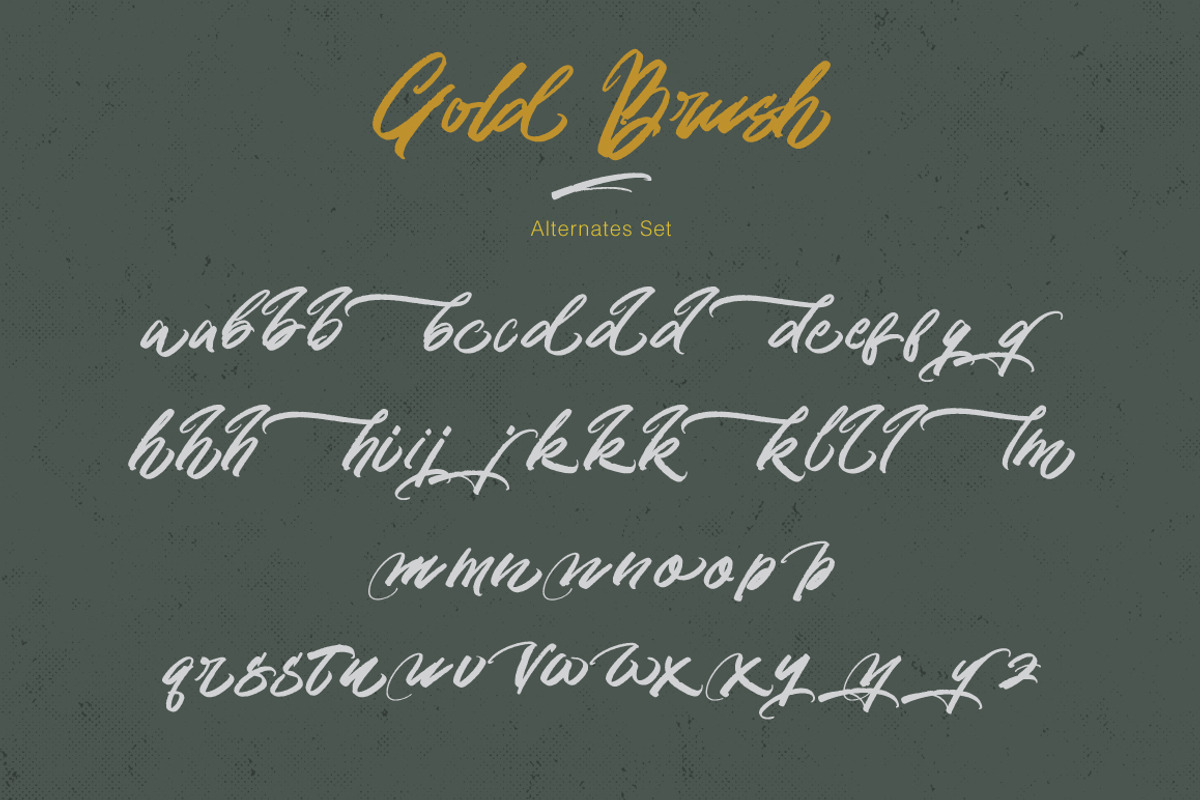 Gold Brush
Alternates Set
aabbb bccddd deeffg g
hhh hiijj jkkk klll lm
mmnnnoopp
qrssTuuvVwwxxyyyz